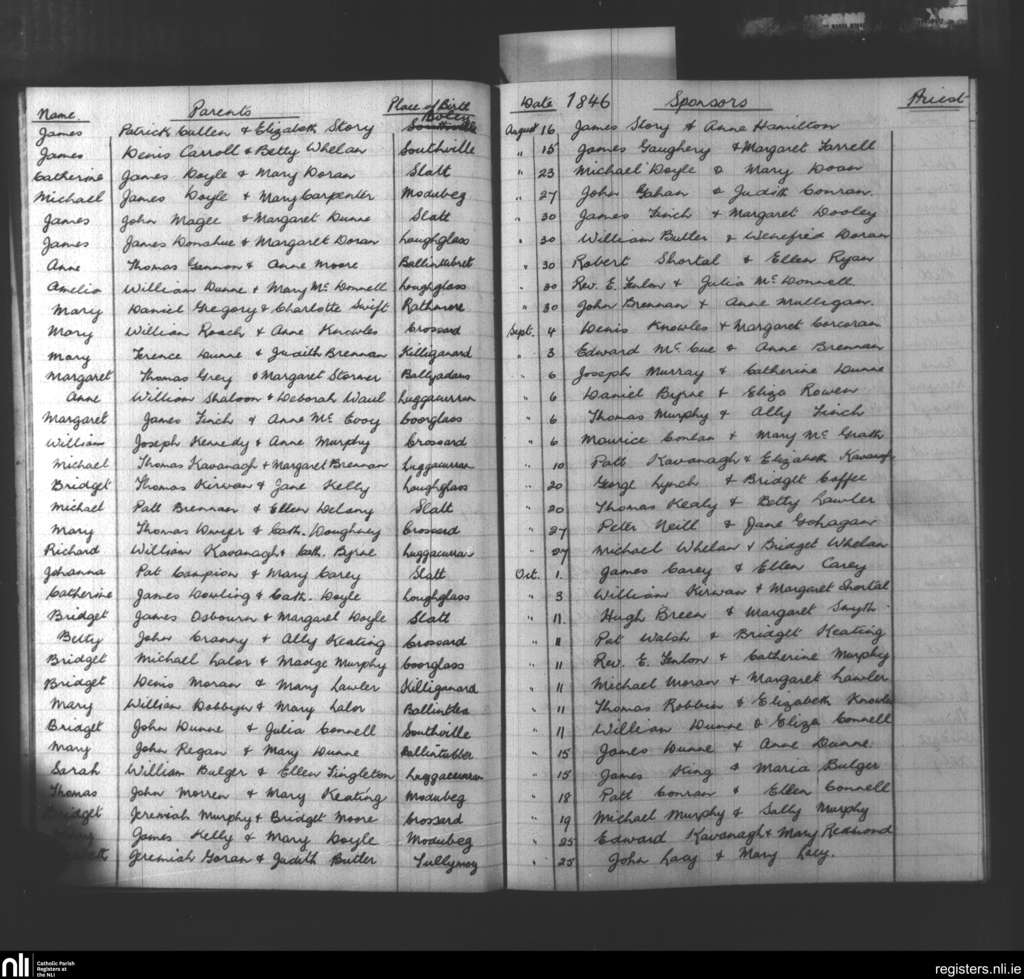 Name Parents Place of Birth Date 1846 Sponsors Priest
Boley
James Patrick Cullen & Elizabeth Story Southville August 16 James Story & Anne Hamilton
James Denis Carroll & Betty Whelan Southville " 15 James Gaughery & Margaret Farrell
Catherine James Doyle & Mary Doran Slatt " 23 Michael Doyle & Mary Doran
Michael James Doyle & Mary Carpenter Modubeg " 27 John Gahan & Judith Conran.
James John Magee & Margaret Dunne Slatt " 30 James Finch & Margaret Dooley
James James Donahue & Margaret Doran Loughglass " 30 William Butler & Wenefred Doran
Anne Thomas Gannon & Anne Moore Ballintubret " 30 Robert Shortal & Ellen Ryan
Amelia William Dunne & Mary Mc Donnell Loughglass " 30 Rev. E. Fenlon & Julia Mc Donnell
Mary Daniel Gregory & Charlotte Swift Rathmore " 30 John Brennan & Anne Mulligan.
Mary William Roach & Anne Knowles Crossard Sept. 4 Denis Knowles & Margaret Corcoran
Mary Terence Dunne & Judith Brennan Killiganard " 3 Edward Mc Cue & Anne Brennan
Margaret Thomas Grey & Margaret Stormer Ballyadams " 6 Joseph Murray & Catherine Dunne
Anne William Shaloon & Deborah Waul Luggacurran " 6 Daniel Byrne & Eliza Rowen
Margaret James Finch & Anne Mc Evoy Coorglass " 6 Thomas Murphy & Ally Finch
William Joseph Kennedy & Anne Murphy Crossard " 6 Maurice Conlan & Mary Mc Grath
Michael Thomas Kavanagh & Margaret Brennan Luggacurran " 10 Patt Kavanagh & Elizabeth Kavanagh
Bridget Thomas Kirwan & Jane Kelly Loughglass " 20 George Lynch & Bridget Coffee
Michael Patt Brennan & Ellen Delany Slatt " 20 Thomas Kealy & Betty Lawler
Mary Thomas Dwyer & Cath. Doughney Crossard " 27 Peter Neill & Jane Gohagan
Richard William Kavanagh & Cath. Byrne Luggacurran " 27 Michael Whelan & Bridget Whelan
Johanna Pat Campion & Mary Carey Slatt Oct. 1. James Carey & Ellen Carey
Catherine James Dowling & Cath. Doyle Loughglass " 3 William Kirwan & Margaret Shortal
Bridget James Osbourn & Margaret Doyle Slatt " 11. Hugh Breen & Margaret Smyth
Betty John Cranny & Ally Keating Crossard " 11 Pat Walsh & Bridget Keating
Bridget Michael Lalor & Madge Murphy Coorglass " 11 Rev. E. Fenlon & Catherine Murphy
Bridget Denis Moran & Mary Lawler Killiganard " 11 Michael Moran & Margaret Lawler
Mary William Dobbyn & Mary Lalor Ballintlea " 11 Thomas Robbin & Elizabeth Knowles
Bridget John Dunne & Julia Connell Southville " 11 William Dunne & Eliza Connell
Mary John Regan & Mary Dunne Ballintubber " 15 James Dunne & Anne Dunne.
Sarah William Bulger & Ellen Singleton Luggacurran " 15 James King & Maria Bulger
Thomas John Morren & Mary Keating Modubeg " 18 Patt Conran & Ellen Connell
Bridget Jeremiah Murphy & Bridget Moore Crossard " 19 Michael Murphy & Sally Murphy
James Kelly & Mary Doyle Modubeg " 25 Edward Kavanagh & Mary Redmond
Jeremiah Goran & Judith Butler Tullymoy " 25 John Lacy & Mary Lacy.
nli Catholic Parish Registers at the NLI
registers.nli.ie